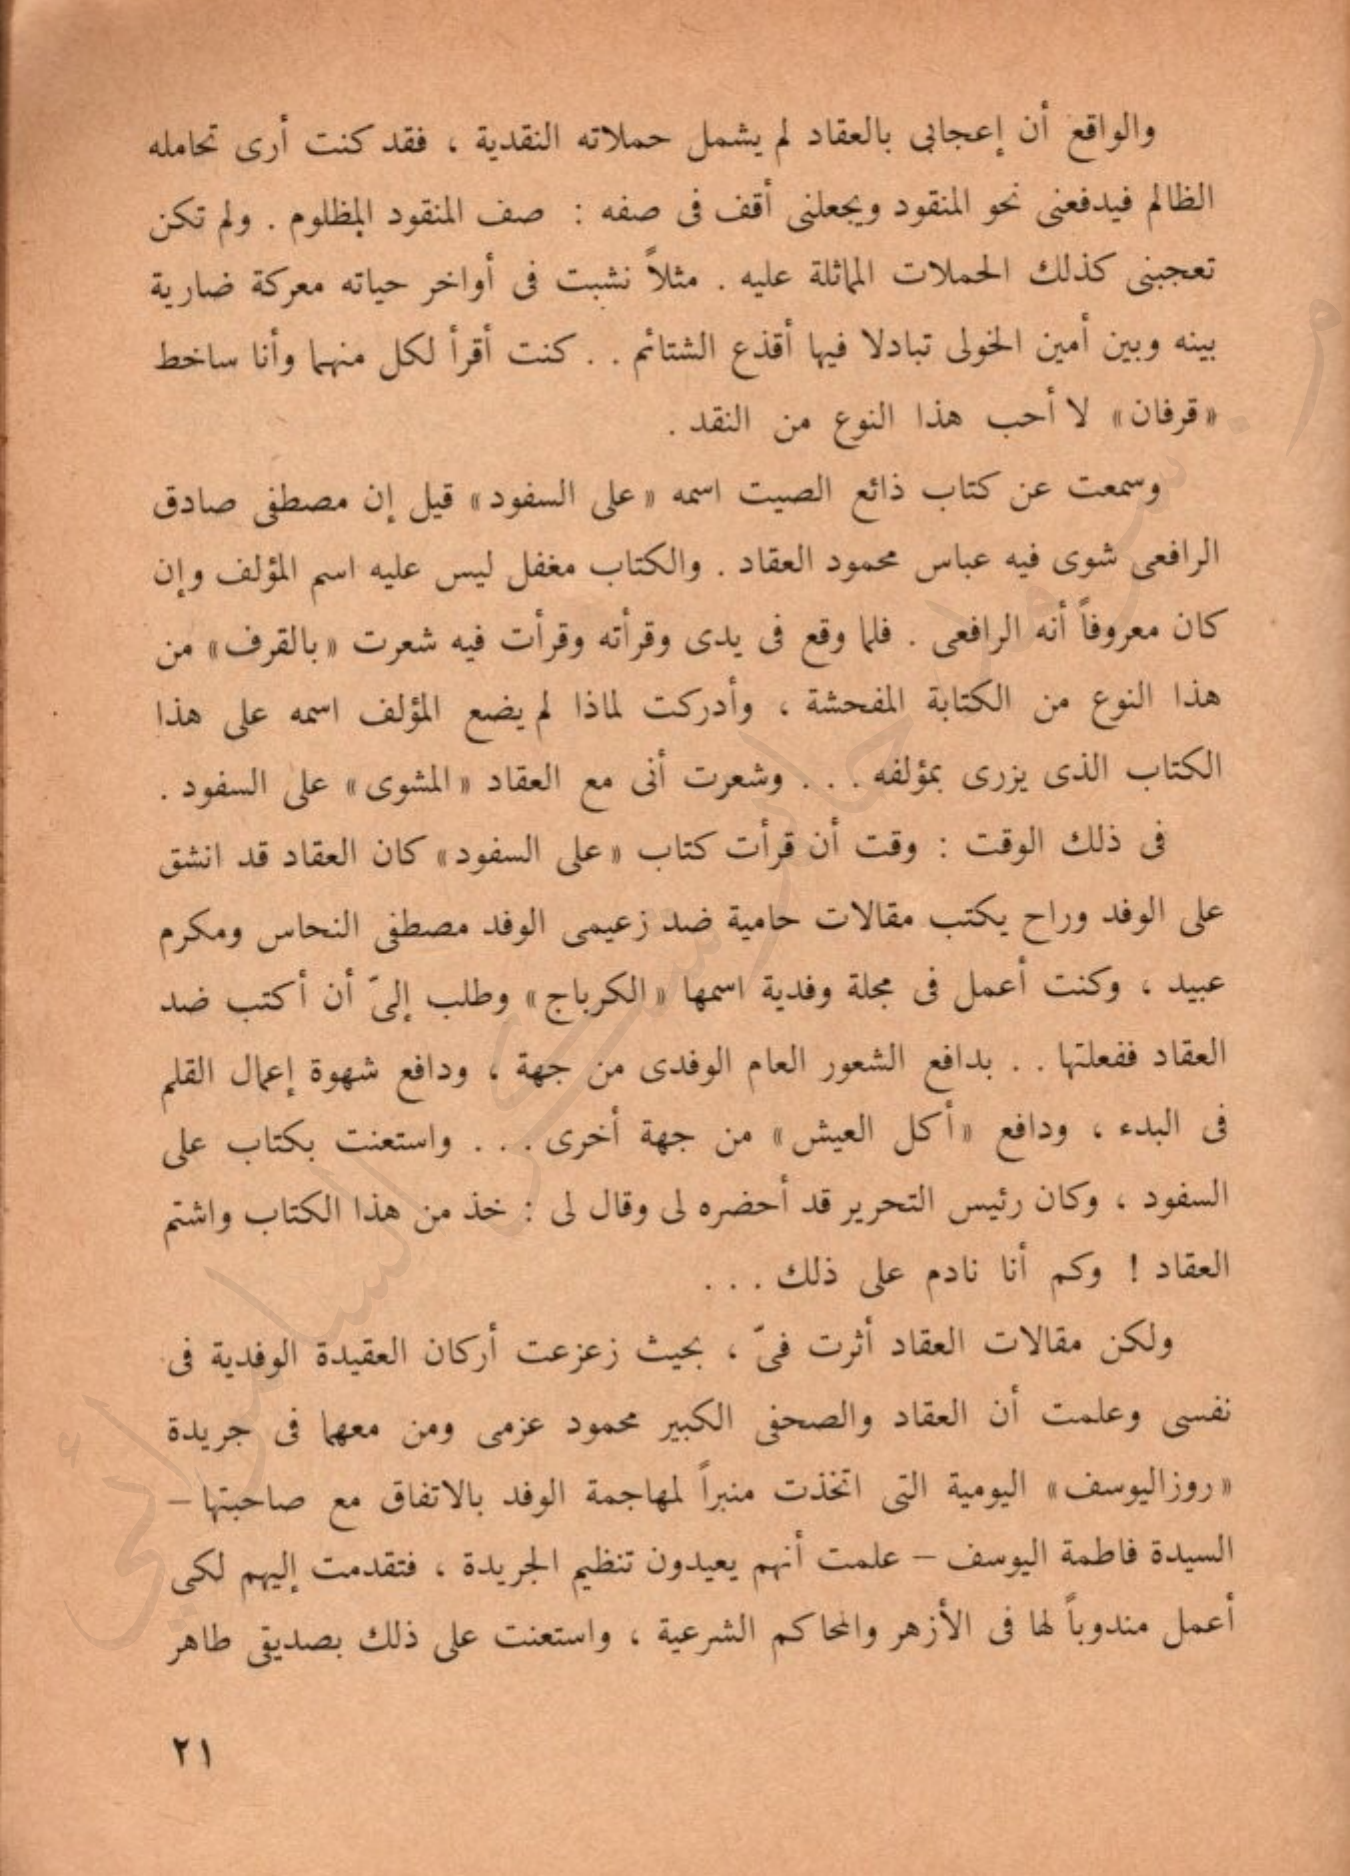 والواقع أن إعجابى بالعقاد لم يشمل حملاته النقدية ، فقد كنت أرى تحامله
الظالم فيدفعنى نحو المنقود ويجعلنى أقف فى صفه : صف المنقود المظلوم . ولم تكن
تعجبنى كذلك الحملات المماثلة عليه . مثلاً نشبت فى أواخر حياته معركة ضارية
بينه وبين أمين الخولى تبادلا فيها أقذع الشتائم . . كنت أقرأ لكل منهما وأنا ساخط
« قرفان » لا أحب هذا النوع من النقد .
وسمعت عن كتاب ذائع الصيت اسمه « على السفود » قيل إن مصطفى صادق
الرافعى شوى فيه عباس محمود العقاد . والكتاب مغفل ليس عليه اسم المؤلف وإن
كان معروفاً أنه الرافعى . فلما وقع فى يدى وقرأته وقرأت فيه شعرت « بالقرف » من
هذا النوع من الكتابة المفحشة ، وأدركت لماذا لم يضع المؤلف اسمه على هذا
الكتاب الذى يزرى بمؤلفه . . . وشعرت أنى مع العقاد « المشوى » على السفود .
فى ذلك الوقت : وقت أن قرأت كتاب « على السفود » كان العقاد قد انشق
على الوفد وراح يكتب مقالات حامية ضد زعيمى الوفد مصطفى النحاس ومكرم
عبيد ، وكنت أعمل فى مجلة وفدية اسمها « الكرباج » وطلب إلىّ أن أكتب ضد
العقاد ففعلتها . . بدافع الشعور العام الوفدى من جهة ، ودافع شهوة إعمال القلم
فى البدء ، ودافع « أكل العيش » من جهة أخرى . . . واستعنت بكتاب على
السفود ، وكان رئيس التحرير قد أحضره لى وقال لى : خذ من هذا الكتاب واشتم
العقاد ! وكم أنا نادم على ذلك . . .
ولكن مقالات العقاد أثرت فىّ ، بحيث زعزعت أركان العقيدة الوفدية فى
نفسى وعلمت أن العقاد والصحفى الكبير محمود عزمى ومن معهما فى جريدة
« روزاليوسف » اليومية التى اتخذت منبراً لمهاجمة الوفد بالاتفاق مع صاحبتها –
السيدة فاطمة اليوسف – علمت أنهم يعيدون تنظيم الجريدة ، فتقدمت إليهم لكى
أعمل مندوباً لها فى الأزهر والمحاكم الشرعية ، واستعنت على ذلك بصديقى طاهر
٢١